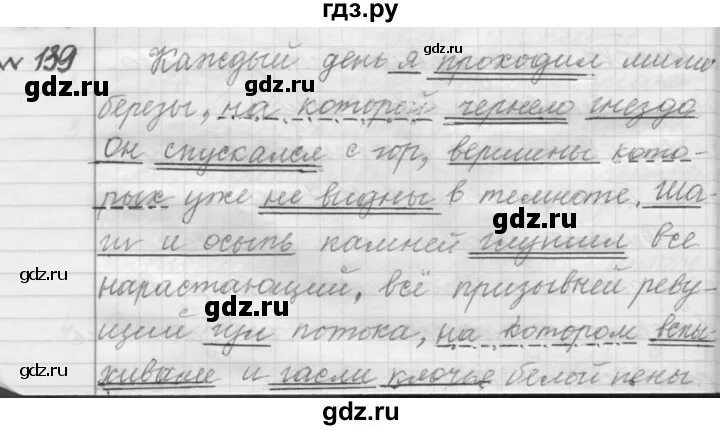 гдз.ру
№ 139 Каждый день я проходил мимо
березы, на которой чернело гнездо
Он спускался с гор, вершины кото-
рых уже не видны в темноте. Ша-
ги и осыпь камней глушил все
нарастающий, всё призывней реву-
щий гул потока, на котором вспы-
хивали и гасли клочья белой пены.
gdz.ru
gdz.ru
gdz.ru
gdz.ru
gdz.ru
gdz.ru
gdz.ru
gdz.ru
gdz.ru
gdz.ru
gdz.ru